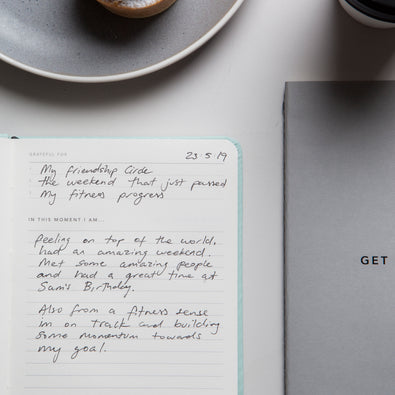 GRATEFUL FOR
23.5.19
My friendship Circle
the weekend that just passed
My fitness progress
IN THIS MOMENT I AM...
Feeling on top of the world,
had an amazing weekend.
Met some amazing people
and had a great time at
Sam's Birthday.
Also from a fitness sense
im on track and building
some momentum towards
my goal.
GET